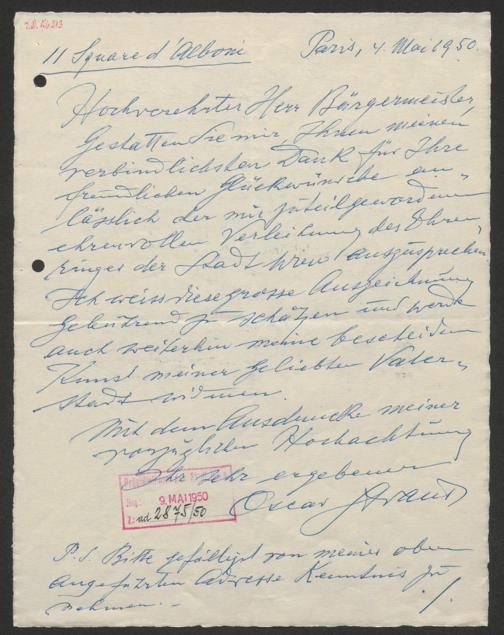 11 Square d'Alboni
Paris, 4. Mai 1950.
Hochverehrter Herr Bürgermeister,
Gestatten Sie mir, Ihnen meinen
verbindlichsten Dank für Ihre
freundlichen Glückwünsche an-
lässlich der mir zuteilgewordenen
ehrenvollen Verleihung des Ehren-
ringes der Stadt Wien auszusprechen
Ich weiss diese grosse Auszeichnung
gebührend zu schätzen und werde
auch weiterhin meine bescheidene
Kunst meiner geliebten Vater-
stadt widmen.
Mit dem Ausdrucke meiner
vorzüglichen Hochachtung
Ihr sehr ergebener
Oscar Straus
9. MAI 1950
ad 2875/50
P.S. Bitte gefälligst von meiner oben
angeführten Adresse Kenntnis zu
nehmen. -